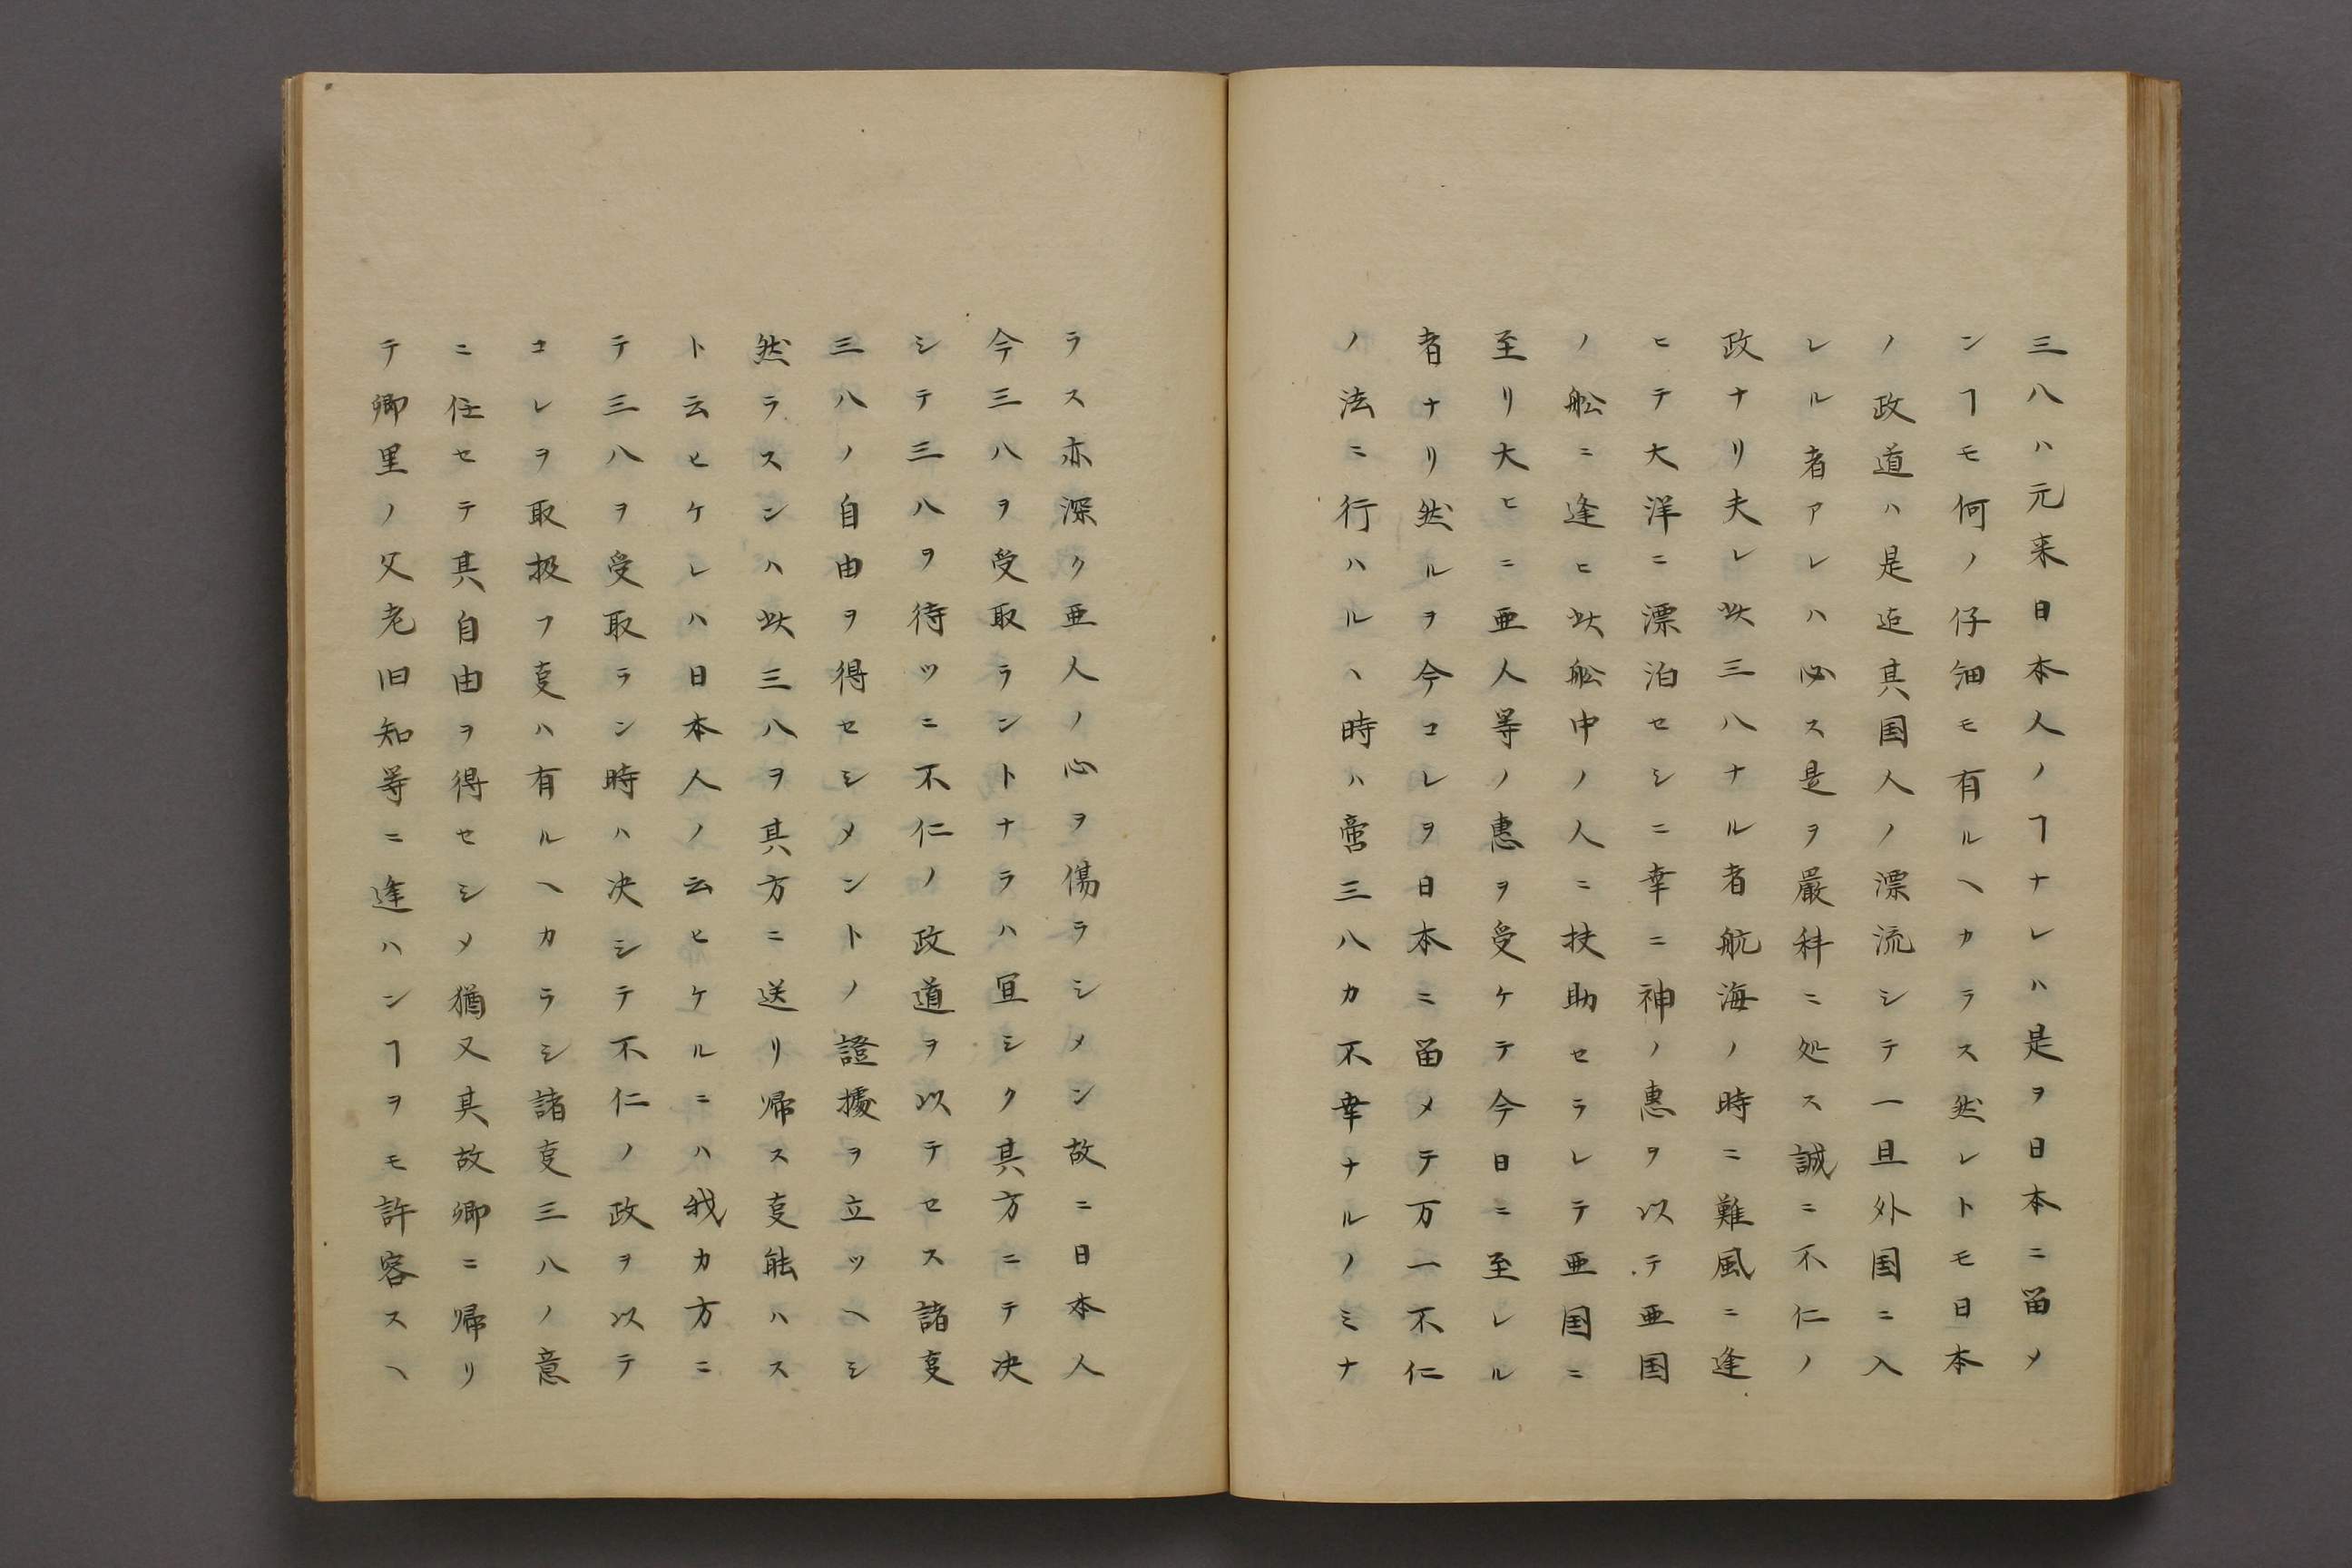 三八ハ元来日本人ノヿナレハ是ヲ日本ニ畄メ
ンヿモ何ノ仔細モ有ルヘカラス然レトモ日本
ノ政道ハ是迄其国人ノ漂流シテ一旦外国ニ入
レル者アレハ必ス是ヲ嚴科ニ処ス誠ニ不仁ノ
政ナリ夫レ此三八ナル者航海ノ時ニ難風ニ逢
ヒテ大洋ニ漂泊セシニ幸ニ神ノ惠ヲ以テ亜国
ノ舩ニ逢ヒ此舩中ノ人ニ扶助セラレテ亜国ニ
至リ大ヒニ亜人等ノ惠ヲ受ケテ今日ニ至レル
者ナリ然ルヲ今コレヲ日本ニ畄メテ万一不仁
ノ法ニ行ハルヽ時ハ啻三八カ不幸ナルノミナ
ラス亦深ク亜人ノ心ヲ傷ラシメン故ニ日本人
今三八ヲ受取ラントナラハ宜シク其方ニテ决
シテ三八ヲ待ツニ不仁ノ政道ヲ以テセス諸叓
三八ノ自由ヲ得セシメントノ證據ヲ立ツヘシ
然ラスンハ此三八ヲ其方ニ送リ帰ス叓能ハス
ト云ヒケレハ日本人ノ云ヒケルニハ我カ方ニ
テ三八ヲ受取ラン時ハ决シテ不仁ノ政ヲ以テ
コレヲ取扱フ叓ハ有ルヘカラシ諸叓三八ノ意
ニ任セテ其自由ヲ得セシメ猶又其故郷ニ帰リ
テ郷里ノ父老旧知等ニ逢ハンヿヲモ許容スヘ